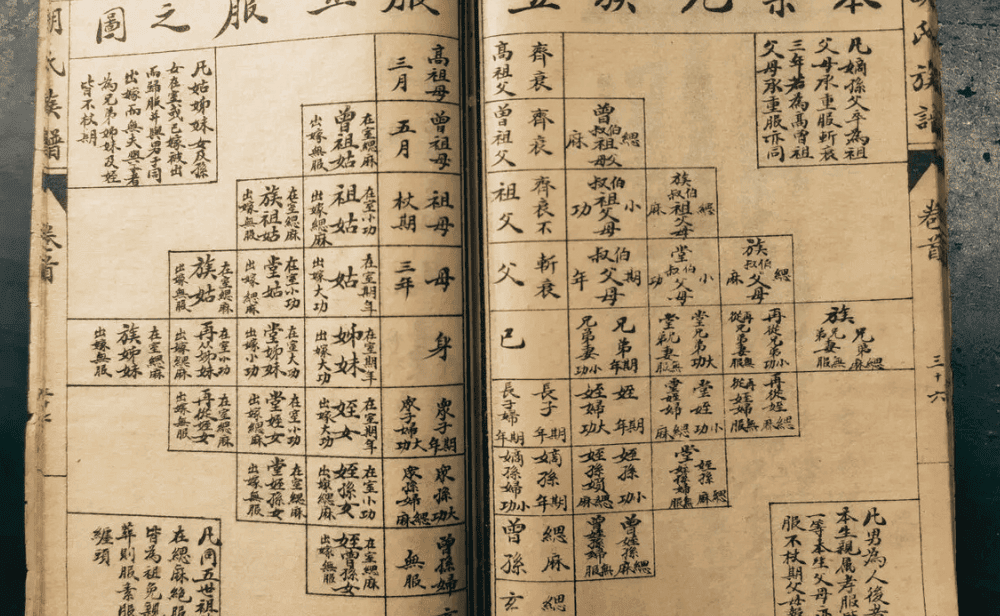 本宗九族五
服正服之圖
氏族譜
卷首
三十六
凡嫡孫父卒為祖
父母承重服斬衰
三年若為高曾祖
父母承重服亦同
高祖父
齊衰
高祖母
三月
曾祖父
齊衰
曾伯叔祖父母
緦麻
曾祖母
五月
在室緦麻
曾祖姑
出嫁無服
祖父
齊衰不
伯叔祖父母
小功
族伯叔祖父母
緦麻
祖母
杖期
在室小功
祖姑
出嫁緦麻
在室緦麻
族祖姑
出嫁無服
父
斬衰
伯叔父母
期年
堂伯叔父母
小功
族伯叔父母
緦麻
母
三年
在室期年
姑
出嫁大功
在室小功
堂姑
出嫁緦麻
在室緦麻
族姑
出嫁無服
己
兄弟期年
兄弟妻小功
堂兄弟大功
再從兄弟小功
再從兄弟妻無服
族兄弟緦麻
族兄弟妻無服
身
在室期年
姊妹
出嫁大功
在室大功
堂姊妹
出嫁小功
在室小功
再從姊妹
出嫁緦麻
在室緦麻
族姊妹
出嫁無服
長子期年
長子婦期年
姪期年
姪婦大功
堂姪小功
堂姪婦緦麻
再從姪緦麻
再從姪婦無服
眾子期年
眾子婦大功
在室期年
姪女
出嫁大功
在室小功
堂姪女
出嫁緦麻
在室緦麻
再從姪女
出嫁無服
嫡孫期年
嫡孫婦小功
姪孫小功
姪孫婦緦麻
堂姪孫緦麻
堂姪孫婦無服
眾孫大功
眾孫婦緦麻
在室小功
姪孫女
出嫁緦麻
在室緦麻
堂姪孫女
出嫁無服
曾孫
緦麻
曾姪孫緦麻
曾姪孫婦無服
曾孫婦
無服
在室緦麻
姪曾孫女
出嫁無服
玄
緦
玄
凡男為人後
本生親屬孝服
一等本生父母
服不杖期父母
凡姑姊妹女及孫
女在室或已嫁被出
而歸服并與男子同
出嫁而無夫與子者
為兄弟姊妹及姪
皆不杖期
凡同五世祖
在緦麻絕服
皆為祖免親
葬則服素服
纏頭
胡氏族譜
卷首